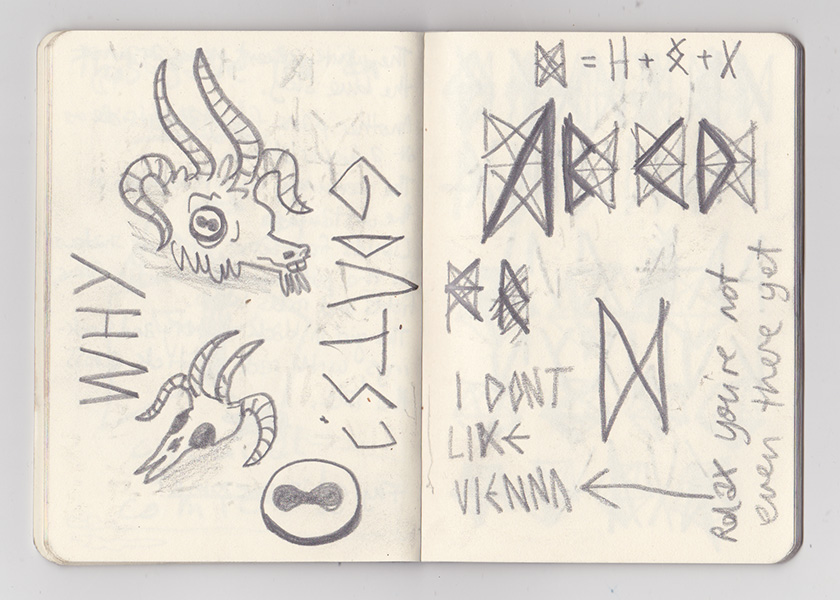 WHY
GOATS?
= H + + X
ABCD
KR
I DONT
LIKE
VIENNA
Relax you're not
even there yet